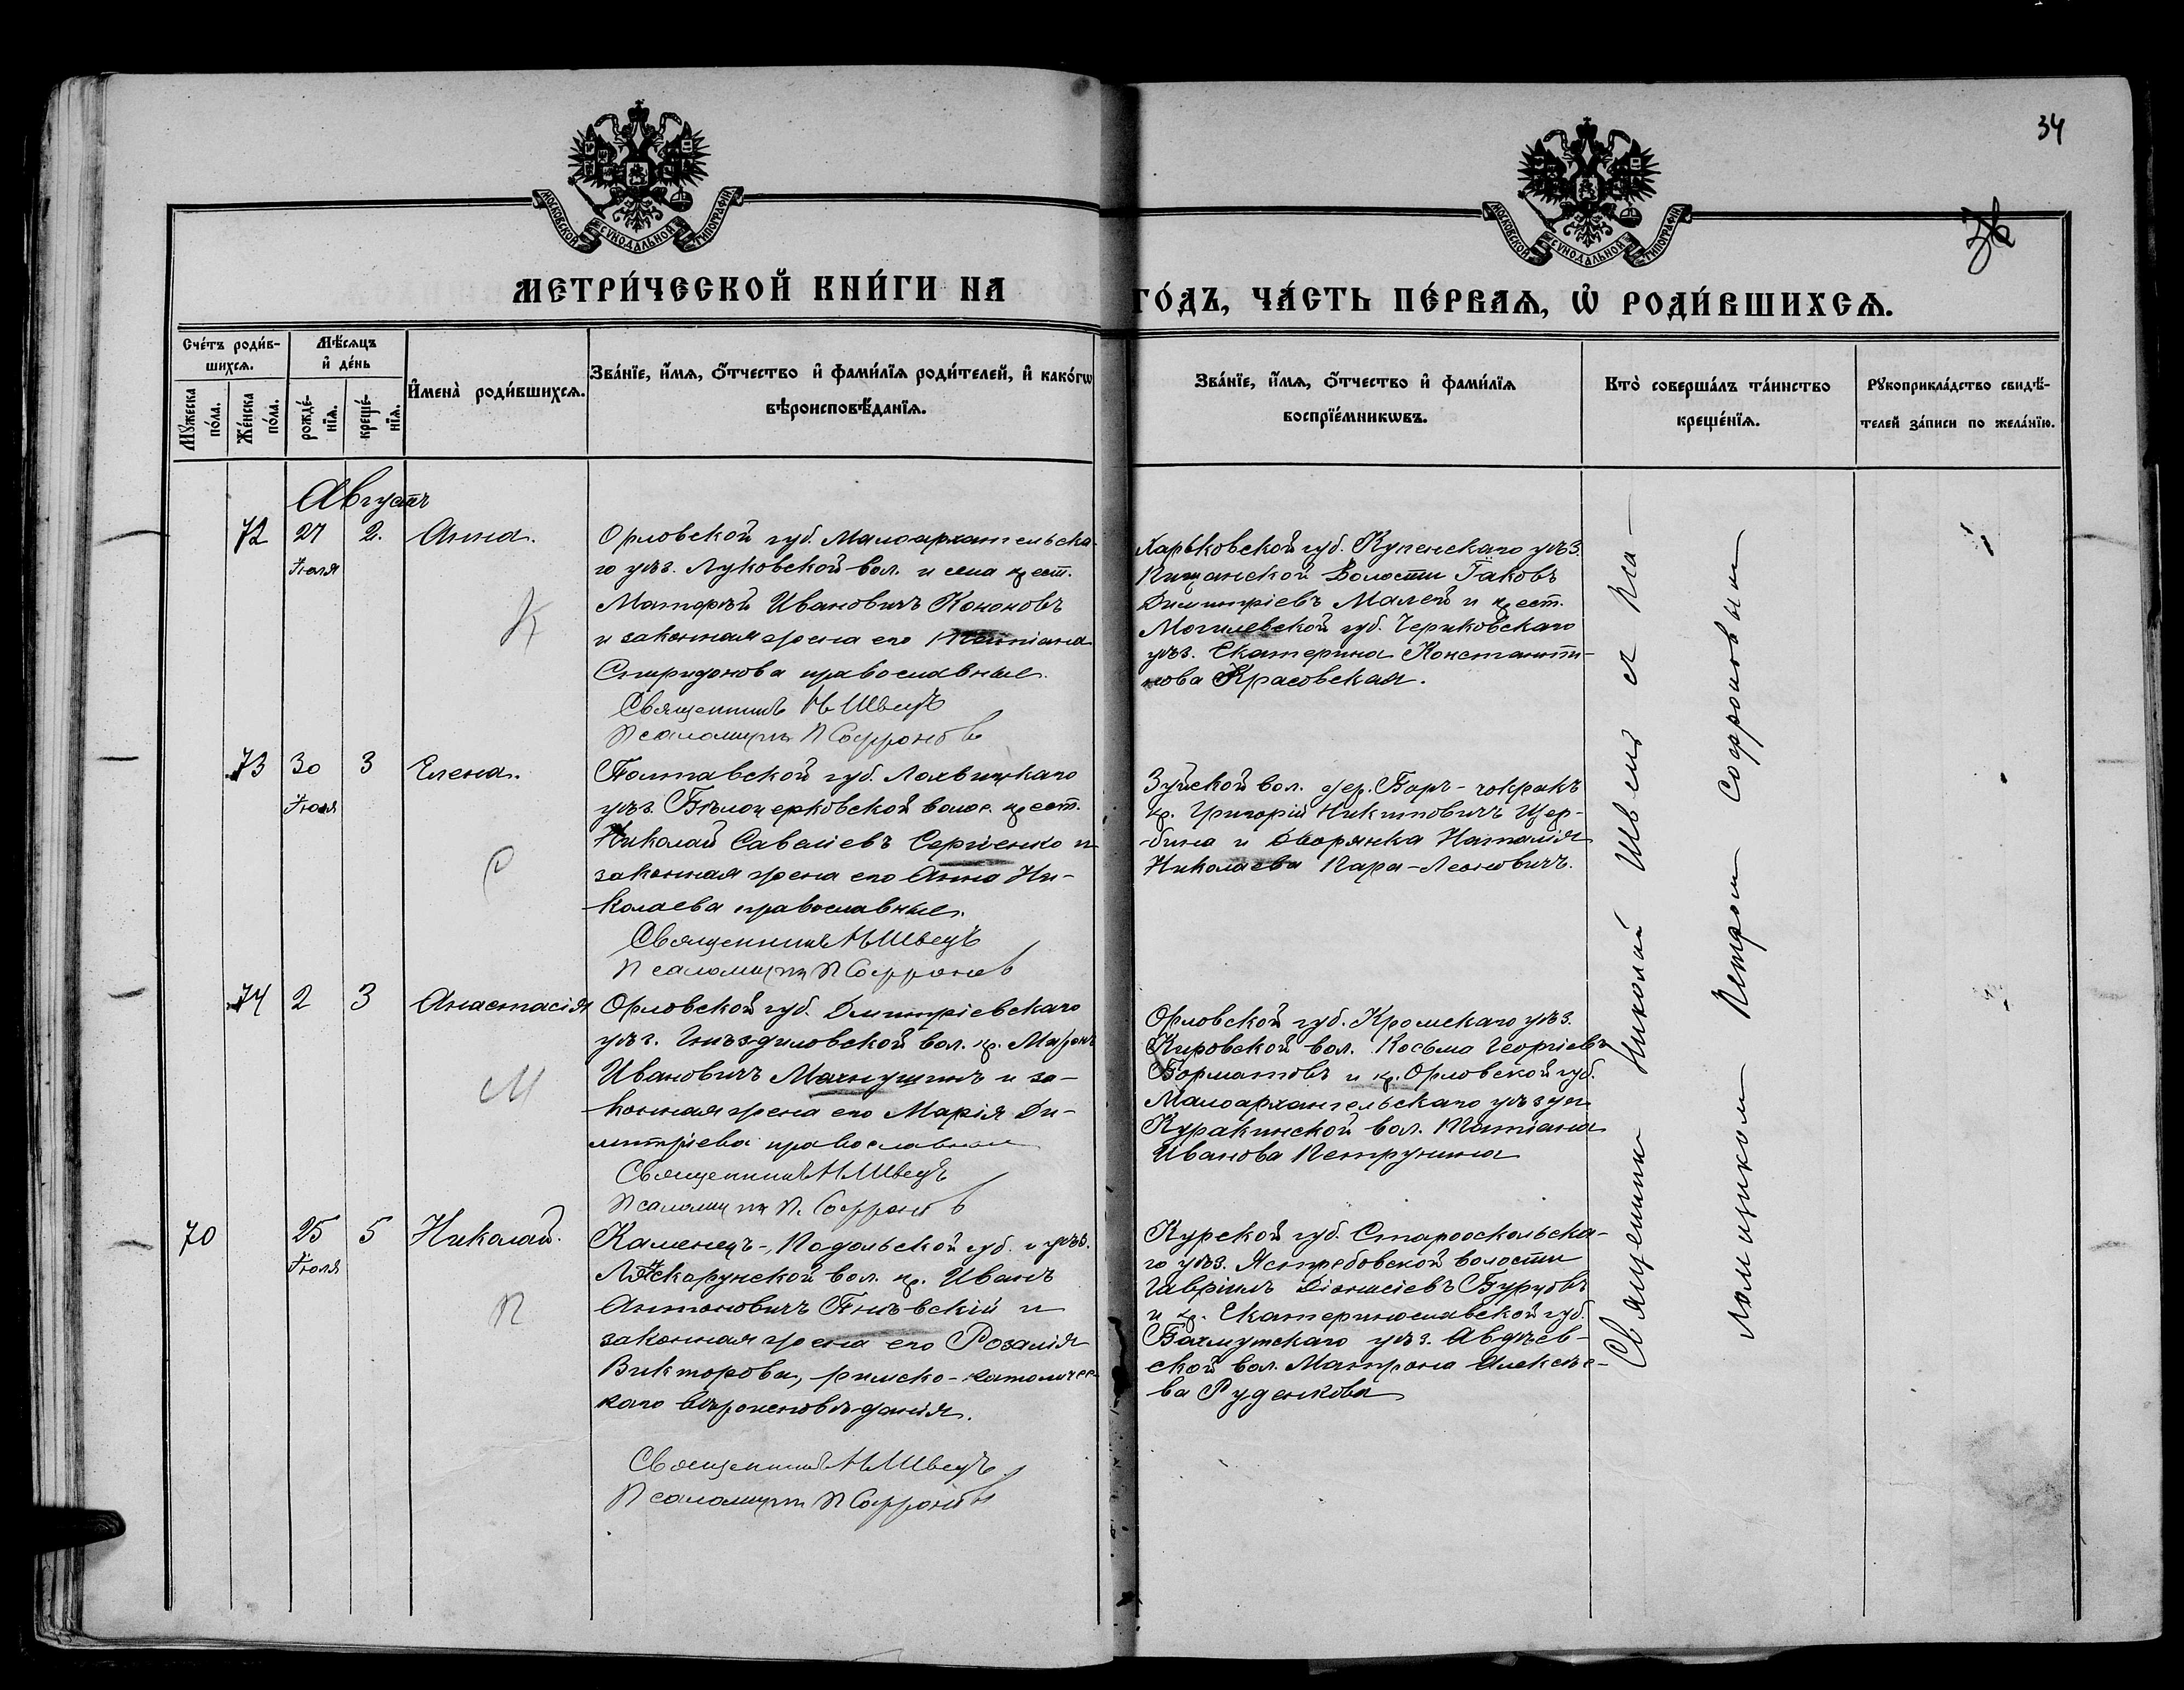 34
36
МОСКОВСКОЙ СѴНОДАЛЬНОЙ ТИПОГРАФІИ
МОСКОВСКОЙ СѴНОДАЛЬНОЙ ТИПОГРАФІИ
МЕТРИ́ЧЕСКОЙ КНИ́ГИ НА
ГО́ДЪ, ЧА́СТЬ ПЕ́РВАѦ, Ѿ РОДИ́ВШИХСѦ.
Сче́тъ роди́в-
шихсѧ.
Мꙋжеска по́ла.
Же́нска по́ла.
Мѣ́сѧцъ
и҆ де́нь
рожде́-
нїѧ.
креще́-
нїѧ.
И҆мена̀ роди́вшихсѧ.
Зва́нїе, и҆́мѧ, ѻ҆́тчество и҆ фами́лїѧ роди́телей, и҆ како́гѡ
вѣроисповѣ́данїѧ.
Зва́нїе, и҆́мѧ, ѻ҆́тчество и҆ фами́лїѧ
воспрїе́мникѡвъ.
Кто̀ соверша́лъ та́инство
креще́нїѧ.
Рꙋкоприкла́дство свидѣ́-
телей за́писи по жела́нїю.
Августъ
72
27
Іюля
2.
Анна.
Орловской губ. Малоархательска-
го уѣз. Луковской вол. и села крест.
Матфей Ивановичъ Кононовъ
и законная жена его Татіана
Спиридонова православные.
Священникъ Н Швецъ
Псаломщикъ П Софроновъ
К
Харьковской губ. Купенскаго уѣз.
волости Іаковъ
Димитріевъ Малей и крест.
Могилевской губ. Чериковскаго
уѣз. Екатерина Константи-
нова Красовская.
73
30
Іюля
3
Елена.
Полтавской губ. Лохвицкаго
уѣз. Бѣлоцерковской волос. крест.
Николай Савеліевъ Сергіенко и
законная жена его Анна Ни-
колаева православные.
Священникъ Н Швецъ
Псаломщикъ П Софроновъ
С
Зуйской вол. дер. Боръ-чокракъ
кр. Григорій Никитовичъ Щер-
бина и дворянка Наталія
Николаева Кара-Леоновичъ.
74
2
3
Анастасія
Орловской губ. Дмитріевскаго
уѣз. Гнѣздиловской вол. кр.
Ивановичъ и за-
конная жена его Марія Ди-
митріева православные
Священникъ Н Швецъ
Псаломщикъ П. Софроновъ
М
Орловской губ. Кромскаго уѣз.
Кировской вол. Косьма Георгіевъ
Борматовъ и кр. Орловской губ.
Малоархангельскаго уѣзда
Куракинской вол. Татіана
Иванова Петрунина
70
25
Іюля
5
Николай.
Каменецъ-Подольской губ. и уѣз.
вол. кр. Иванъ
Антоновичъ и
законная жена его Розалія
Викторова, римско-католичес-
каго вѣроисповѣданія.
Священникъ Н Швецъ
Псаломщикъ П Софроновъ
П
Курской губ. Старооскольска-
го уѣз. Ястребовской волости
Гавріилъ Діонисіевъ Бурцовъ
и кр. Екатеринославской губ.
Бахмутскаго уѣз. Авдѣев-
ской вол. Матрона Алексѣе-
ва Руденкова
Священник Николай Швец с Пса-
ломщиком Петром Софроновым